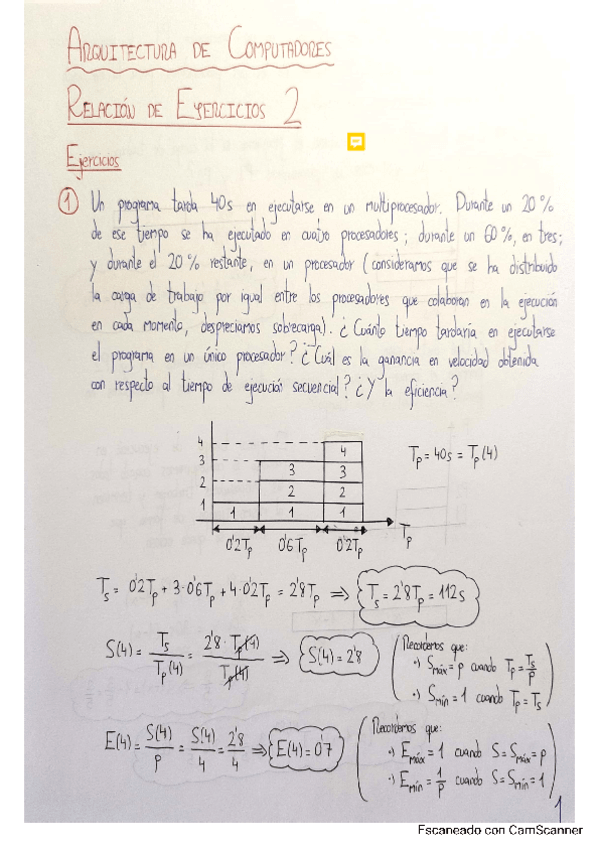 ARQUITECTURA DE COMPUTADORES
RELACIÓN DE EJERCICIOS 2
Ejercicios
① Un programa tarda 40s en ejecutarse en un multiprocesador. Durante un 20%
de ese tiempo se ha ejecutado en cuatro procesadores; durante un 60%, en tres;
y durante el 20% restante, en un procesador (consideramos que se ha distribuido
la carga de trabajo por igual entre los procesadores que colaboran en la ejecución
en cada momento, despreciamos sobrecarga). ¿Cuánto tiempo tardaría en ejecutarse
el programa en un único procesador? ¿Cuál es la ganancia en velocidad obtenida
con respecto al tiempo de ejecución secuencial? ¿Y la eficiencia?
4 4
3 3 3
2 2 2
1 1 1 1
Tp = 40s = Tp(4)
Tp
0'2Tp 0'6Tp 0'2Tp
Ts = 0'2Tp + 3·0'6Tp + 4·0'2Tp = 2'8Tp ⇒ Ts = 2'8Tp = 112s
S(4) = Ts / Tp(4) = 2'8 · Tp(4) / Tp(4) ⇒ S(4) = 2'8
Recordemos que:
·) Smáx = p cuando Tp = Ts/p
·) Smín = 1 cuando Tp = Ts
E(4) = S(4)/p = S(4)/4 = 2'8/4 ⇒ E(4) = 0'7
Recordemos que:
·) Emáx = 1 cuando S = Smáx = p
·) Emín = 1/p cuando S = Smín = 1
1
Escaneado con CamScanner